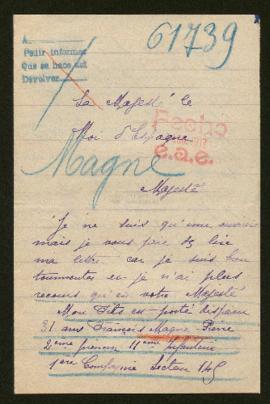 A
Pedir informes
Que se hace así
Devolver
61739
Sa Majesté le
Roi d'Espagne
Fecho
e.a.e.
Magne
Majesté
Je ne suis qu'une ouvrière
mais je vous prie de lire
ma lettre car je suis bien
tourmentée et je n'ai plus
recours qu'en votre Majesté
Mon Fils est porté disparu
31 ans François Magne Pierre
2ème 11ème Infanterie
1ère Compagnie Secteur 145